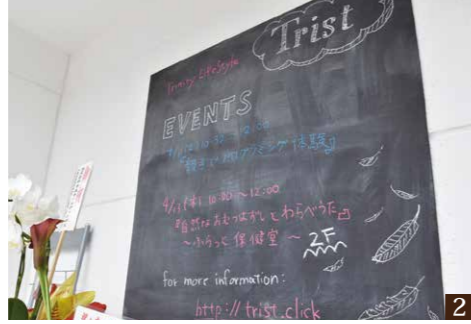 Trist
Trinity LifeStyle
EVENTS
10:30 〜 12:00
プログラミング体験
4/13(木) 10:30〜12:00
自然なおむつはずしとわらべうた
〜ふらっと保健室〜 2F
for more information:
http://trist.click
2